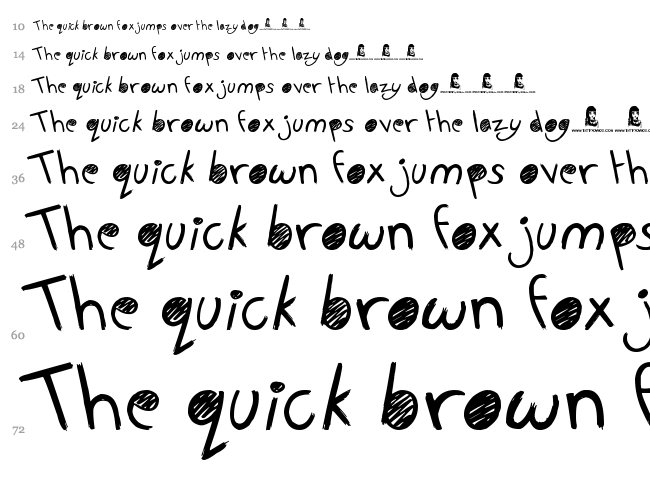 10 The quick brown fox jumps over the lazy dog
14 The quick brown fox jumps over the lazy dog
18 The quick brown fox jumps over the lazy dog
24 The quick brown fox jumps over the lazy dog
36 The quick brown fox jumps over th
48 The quick brown fox jumps
60 The quick brown fox j
72 The quick brown f